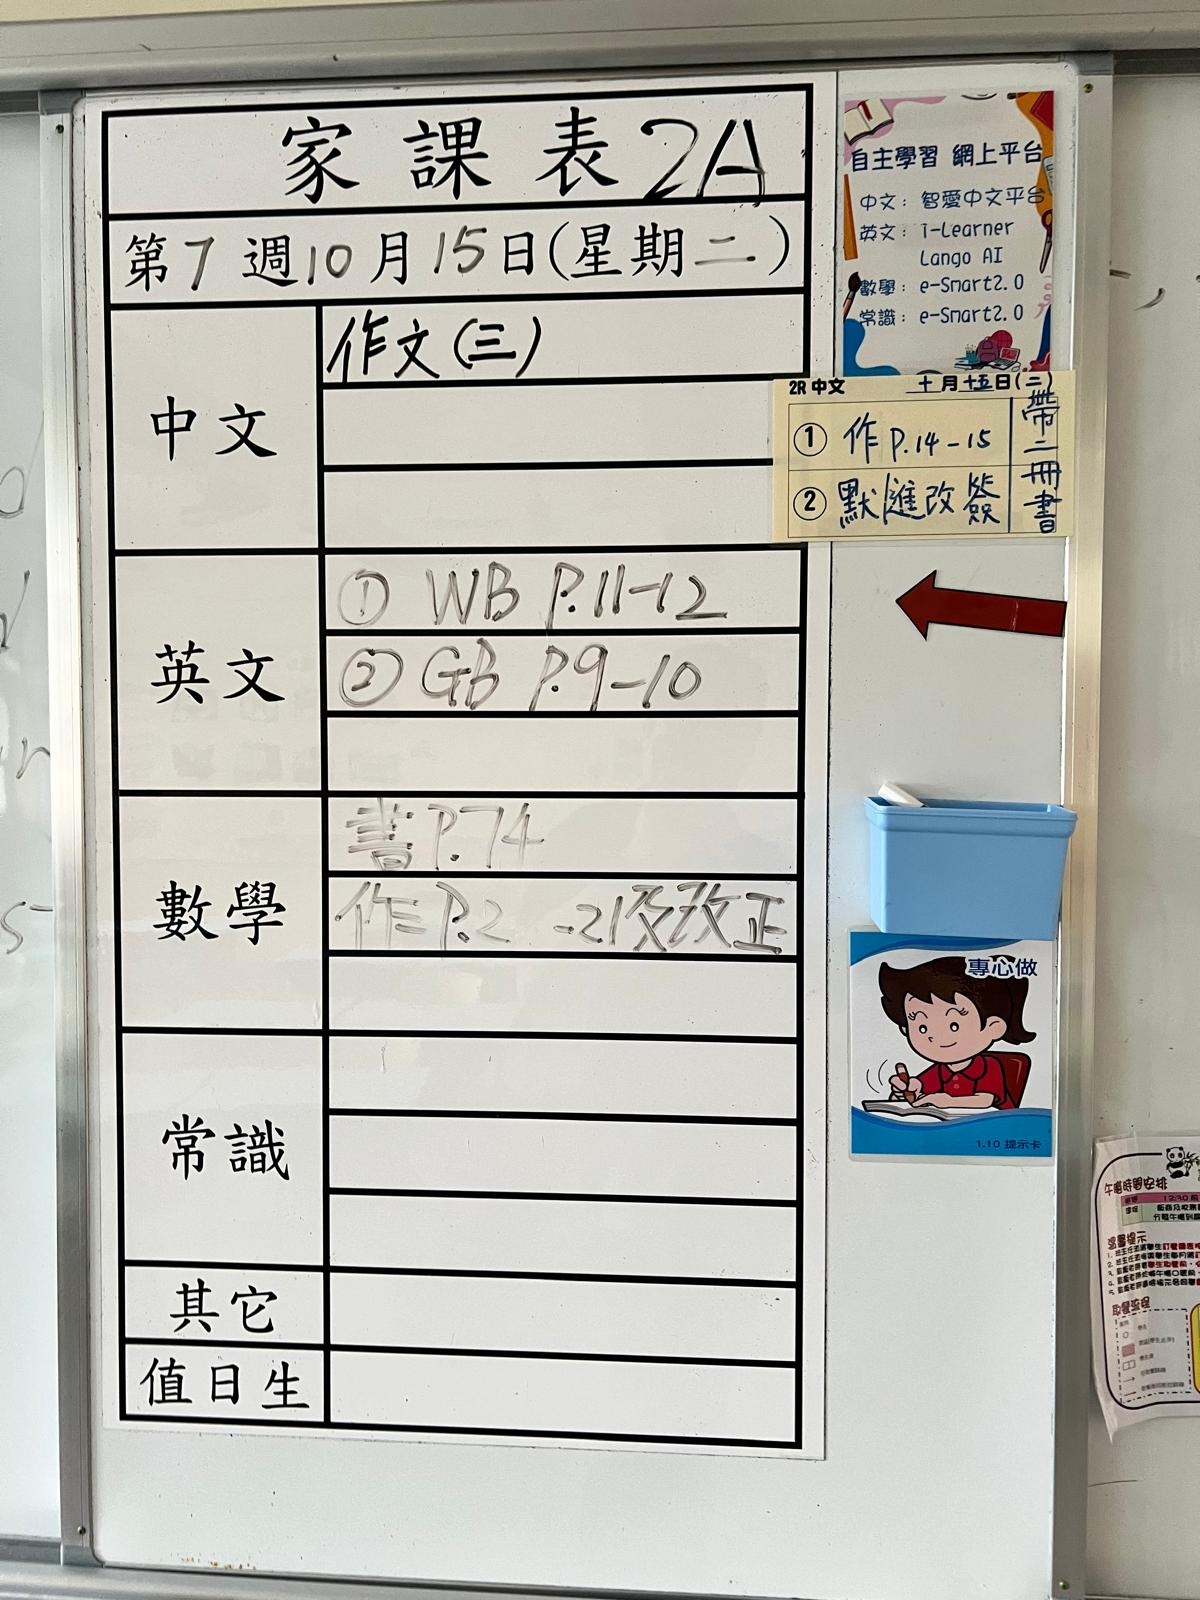 家課表 2A
第7週10月15日(星期二)
中文
作文(三)
英文
① WB P.11-12
② GB P.9-10
數學
書 P.74
作 P.2 -21及改正
常識
其它
值日生
自主學習 網上平台
中文: 智愛中文平台
英文: i-Learner
Lango AI
數學: e-Smart2.0
常識: e-Smart2.0
2R 中文 十月十五日(二)
① 作 P.14-15
② 默進改簽
帶二冊書
專心做
1.10 提示卡
午膳時間安排
12:30
溫馨提示
取餐流程